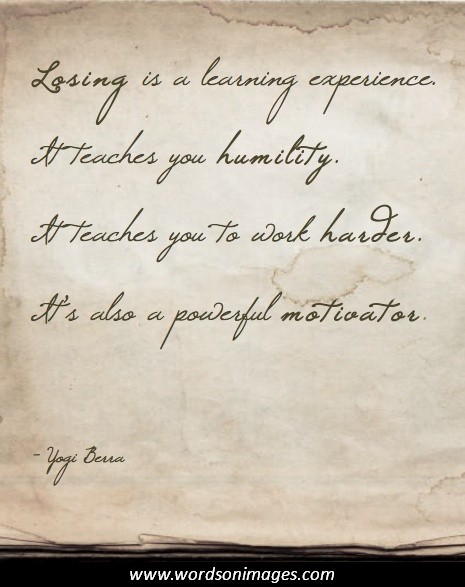 Losing is a learning experience.
It teaches you humility.
It teaches you to work harder.
It's also a powerful motivator.
- Yogi Berra
www.wordsonimages.com